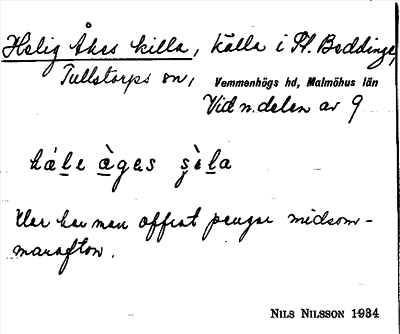 Helig Åkes killa, källa i St. Beddinge,
Tullstorps sn, Vemmenhögs hd, Malmöhus län
Vid n. delen av 9
hále àges s̨èla
Här har man offrat pengar midsom-
marafton.
NILS NILSSON 1934